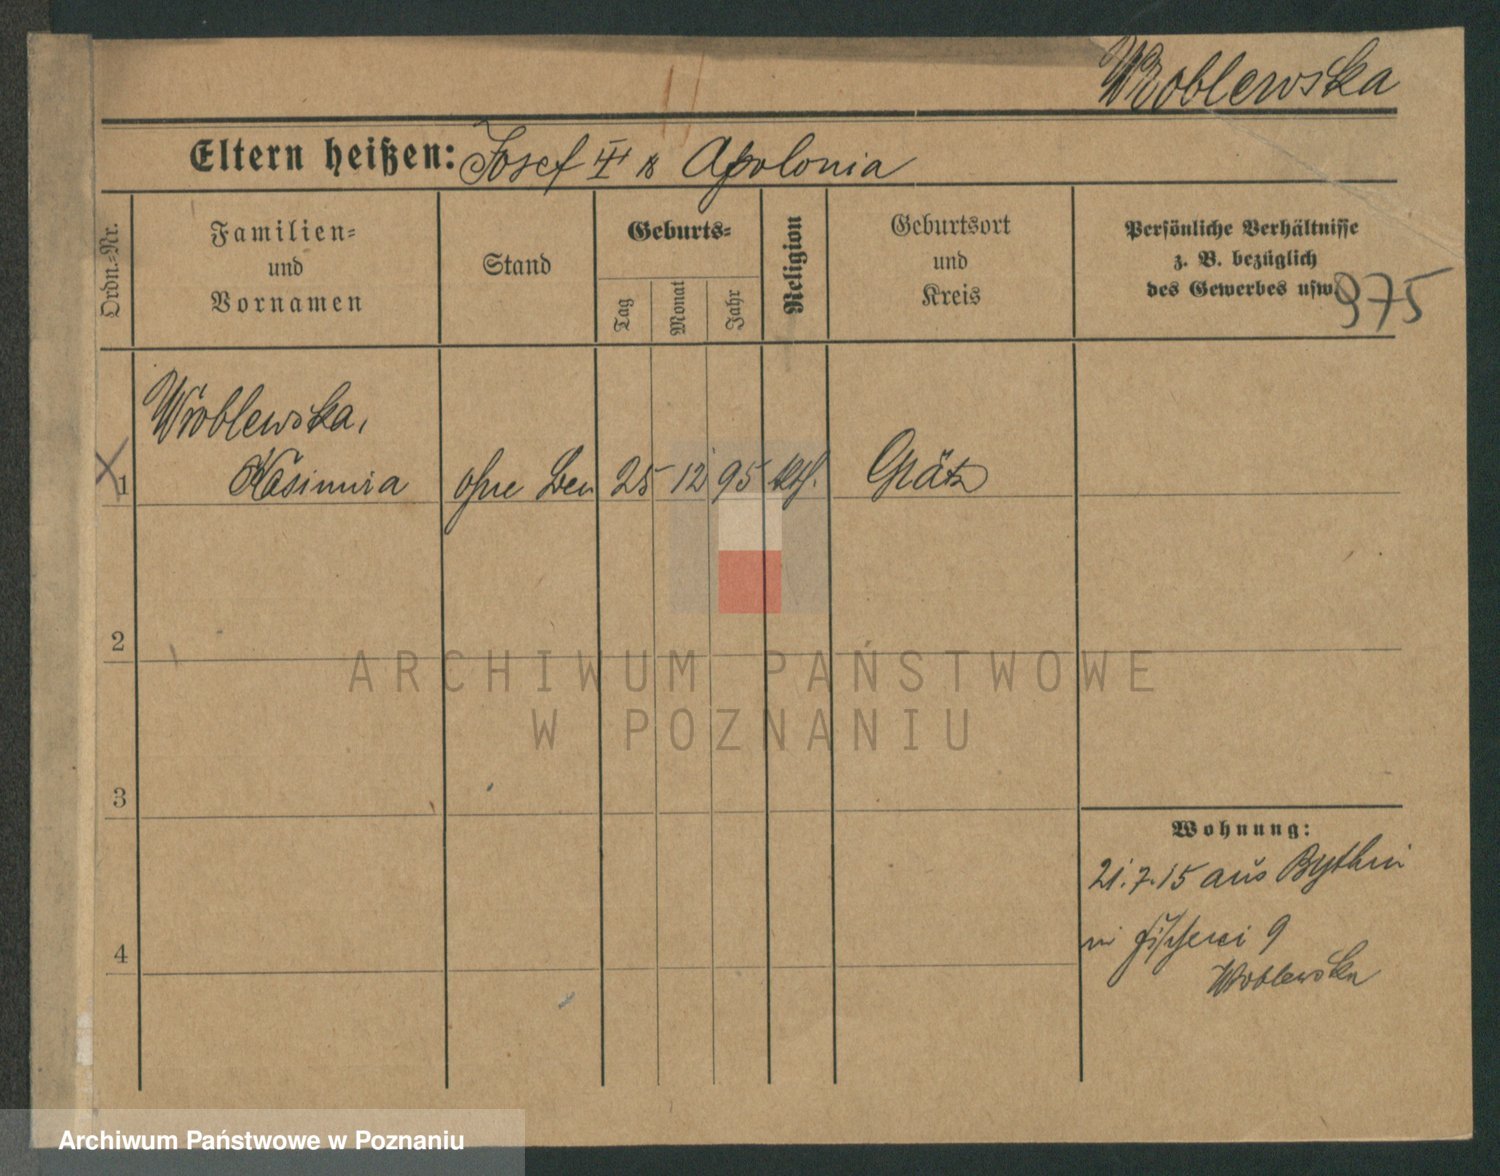 Wroblewska
Eltern heißen: Josef III & Apolonia
Ordn.-Nr.
Familien-
und
Vornamen
Stand
Geburts-
Tag
Monat
Jahr
Religion
Geburtsort
und
Kreis
Persönliche Verhältnisse
z. B. bezüglich
des Gewerbes usw.
975
Wroblewska,
1 Kasimira ohne Ber 25 12 95 kth. Grätz
2
ARCHIWUM PAŃSTWOWE
W POZNANIU
3
Wohnung:
21.7.15 aus Bythin
Fischerei 9
Wroblewska
4
Archiwum Państwowe w Poznaniu